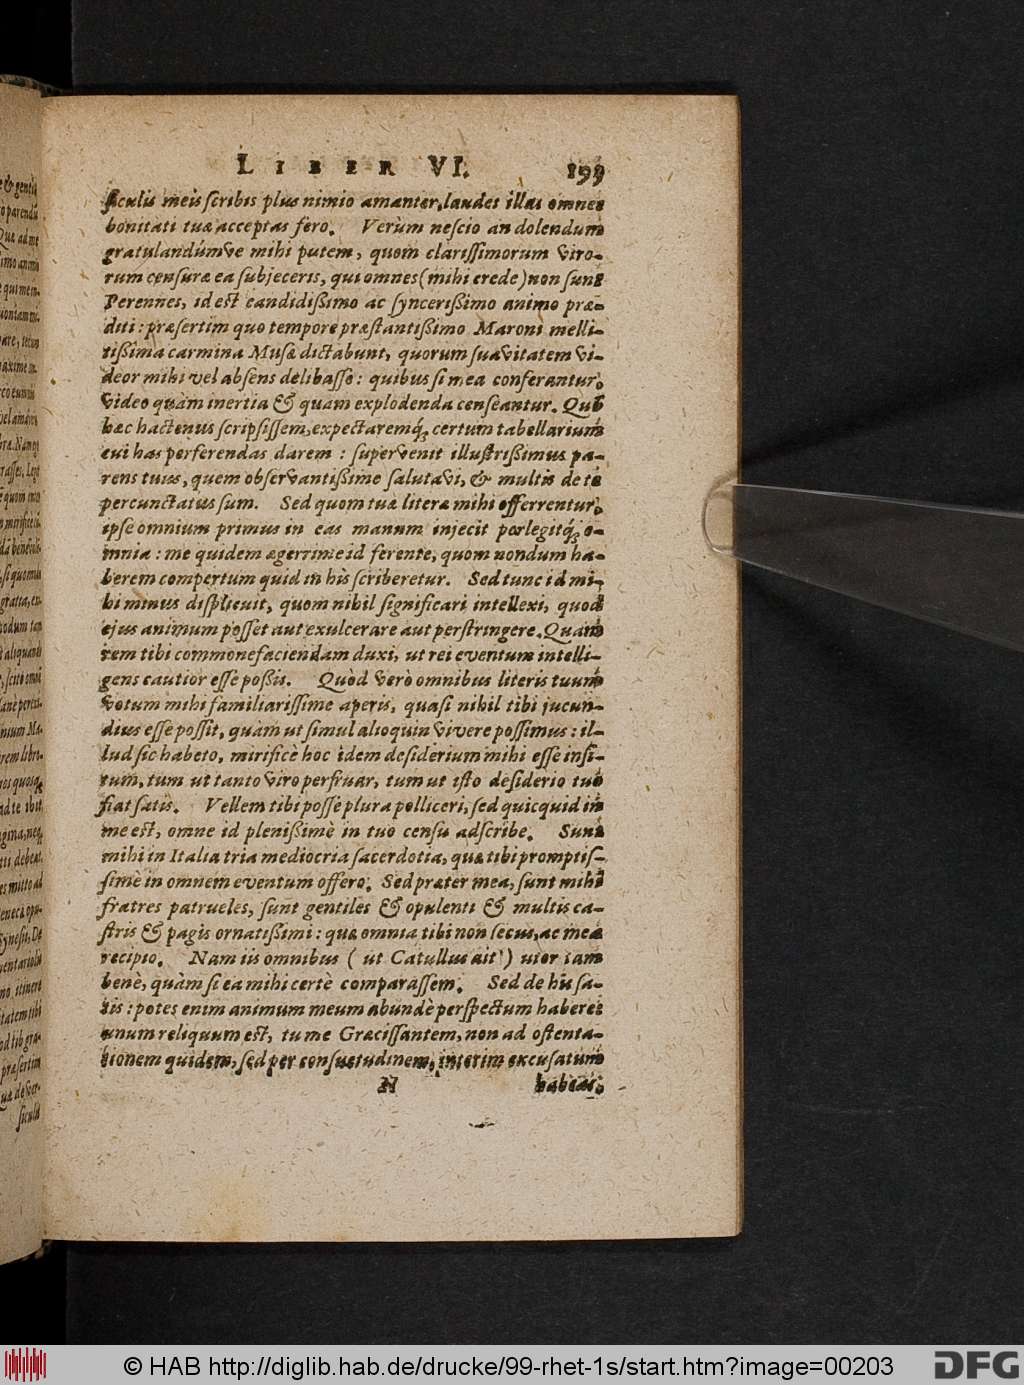 LIBER VI. 199
ſiculis meis ſcribis plus nimio amanter, laudes illas omnes
bonitati tuæ acceptas fero. Verùm neſcio an dolendum
gratulandúmve mihi putem, quom clariſſimorum viro-
rum cenſuræ ea ſubjeceris, qui omnes (mihi crede) non ſunt
Perennes, id eſt candidißimo ac ſyncerißimo animo præ-
diti: præſertim quo tempore præſtantißimo Maroni melli-
tißima carmina Muſæ dictabunt, quorum ſuavitatem vi-
deor mihi vel abſens delibaſſe: quibus ſi mea conferantur,
video quàm inertia & quam explodenda cenſeantur. Quũ
hæc hactenus ſcripſiſſem, expectaremq́; certum tabellarium
cui has perferendas darem: ſupervenit illuſtrißimus pa-
rens tuus, quem obſervantißime ſalutavi, & multis de te
percunctatus ſum. Sed quom tuæ literæ mihi offerrentur,
ipſe omnium primus in eas manum injecit perlegitq́; o-
mnia: me quidem ægerrime id ferente, quom nondum ha-
berem compertum quid in his ſcriberetur. Sed tunc id mi-
hi minus diſplicuit, quom nihil ſignificari intellexi, quod
ejus animum poſſet aut exulcerare aut perſtringere. Quam
rem tibi commonefaciendam duxi, ut rei eventum intelli-
gens cautior eſſe poßis. Quòd verò omnibus literis tuum
votum mihi familiariſſime aperis, quaſi nihil tibi jucun-
dius eſſe poſſit, quàm ut ſimul alioquin vivere poſſimus: il-
lud ſic habeto, mirificè hoc idem deſiderium mihi eſſe inſi-
tum, tum ut tanto viro perfruar, tum ut iſto deſiderio tuo
fiat ſatis. Vellem tibi poſſe plura polliceri, ſed quicquid in
me eſt, omne id plenißimè in tuo cenſu adſcribe. Sunt
mihi in Italia tria mediocria ſacerdotia, quæ tibi promptiſ-
ſimè in omnem eventum offero. Sed præter mea, ſunt mihi
fratres patrueles, ſunt gentiles & opulenti & multis ca-
ſtris & pagis ornatißimi: quæ omnia tibi non ſecus, ac mea
recipio. Nam iis omnibus ( ut Catullus ait ) utor tam
benè, quàm ſi ea mihi certè comparaſſem. Sed de his ſa-
tis: potes enim animum meum abundè perſpectum habere:
unum reliquum eſt, tu me Græciſſantem, non ad oſtenta-
tionem quidem, ſed per conſuetudinem, interim excuſatum
N habeas,
ſiculis
© HAB http://diglib.hab.de/drucke/99-rhet-1s/start.htm?image=00203
DFG